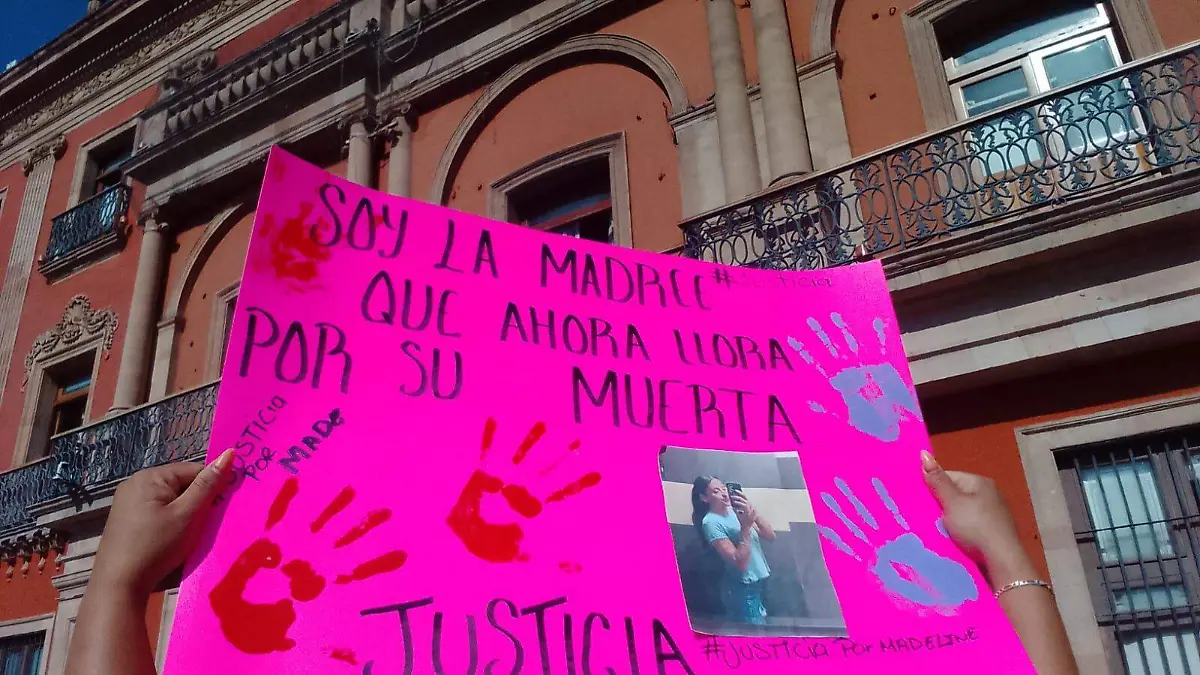 SOY LA MADRE
#JUSTICIA
QUE AHORA LLORA
POR SU MUERTA
JUSTICIA
POR
MADE
JUSTICIA
#JUSTICIA POR MADELINE